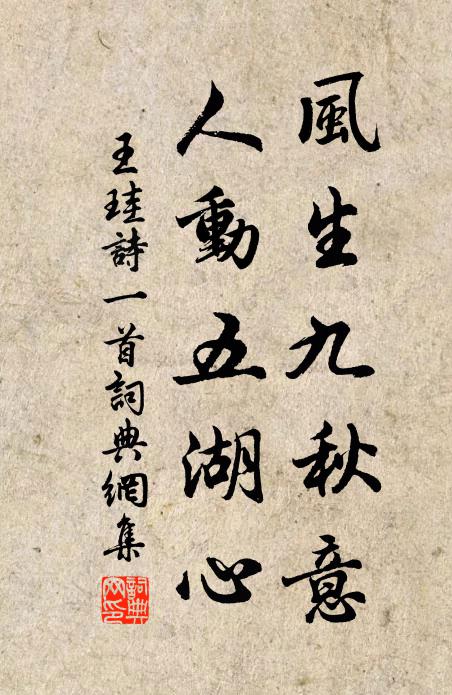 風生九秋意
人動五湖心
王珪詩一首詞典網集
詞典
网印